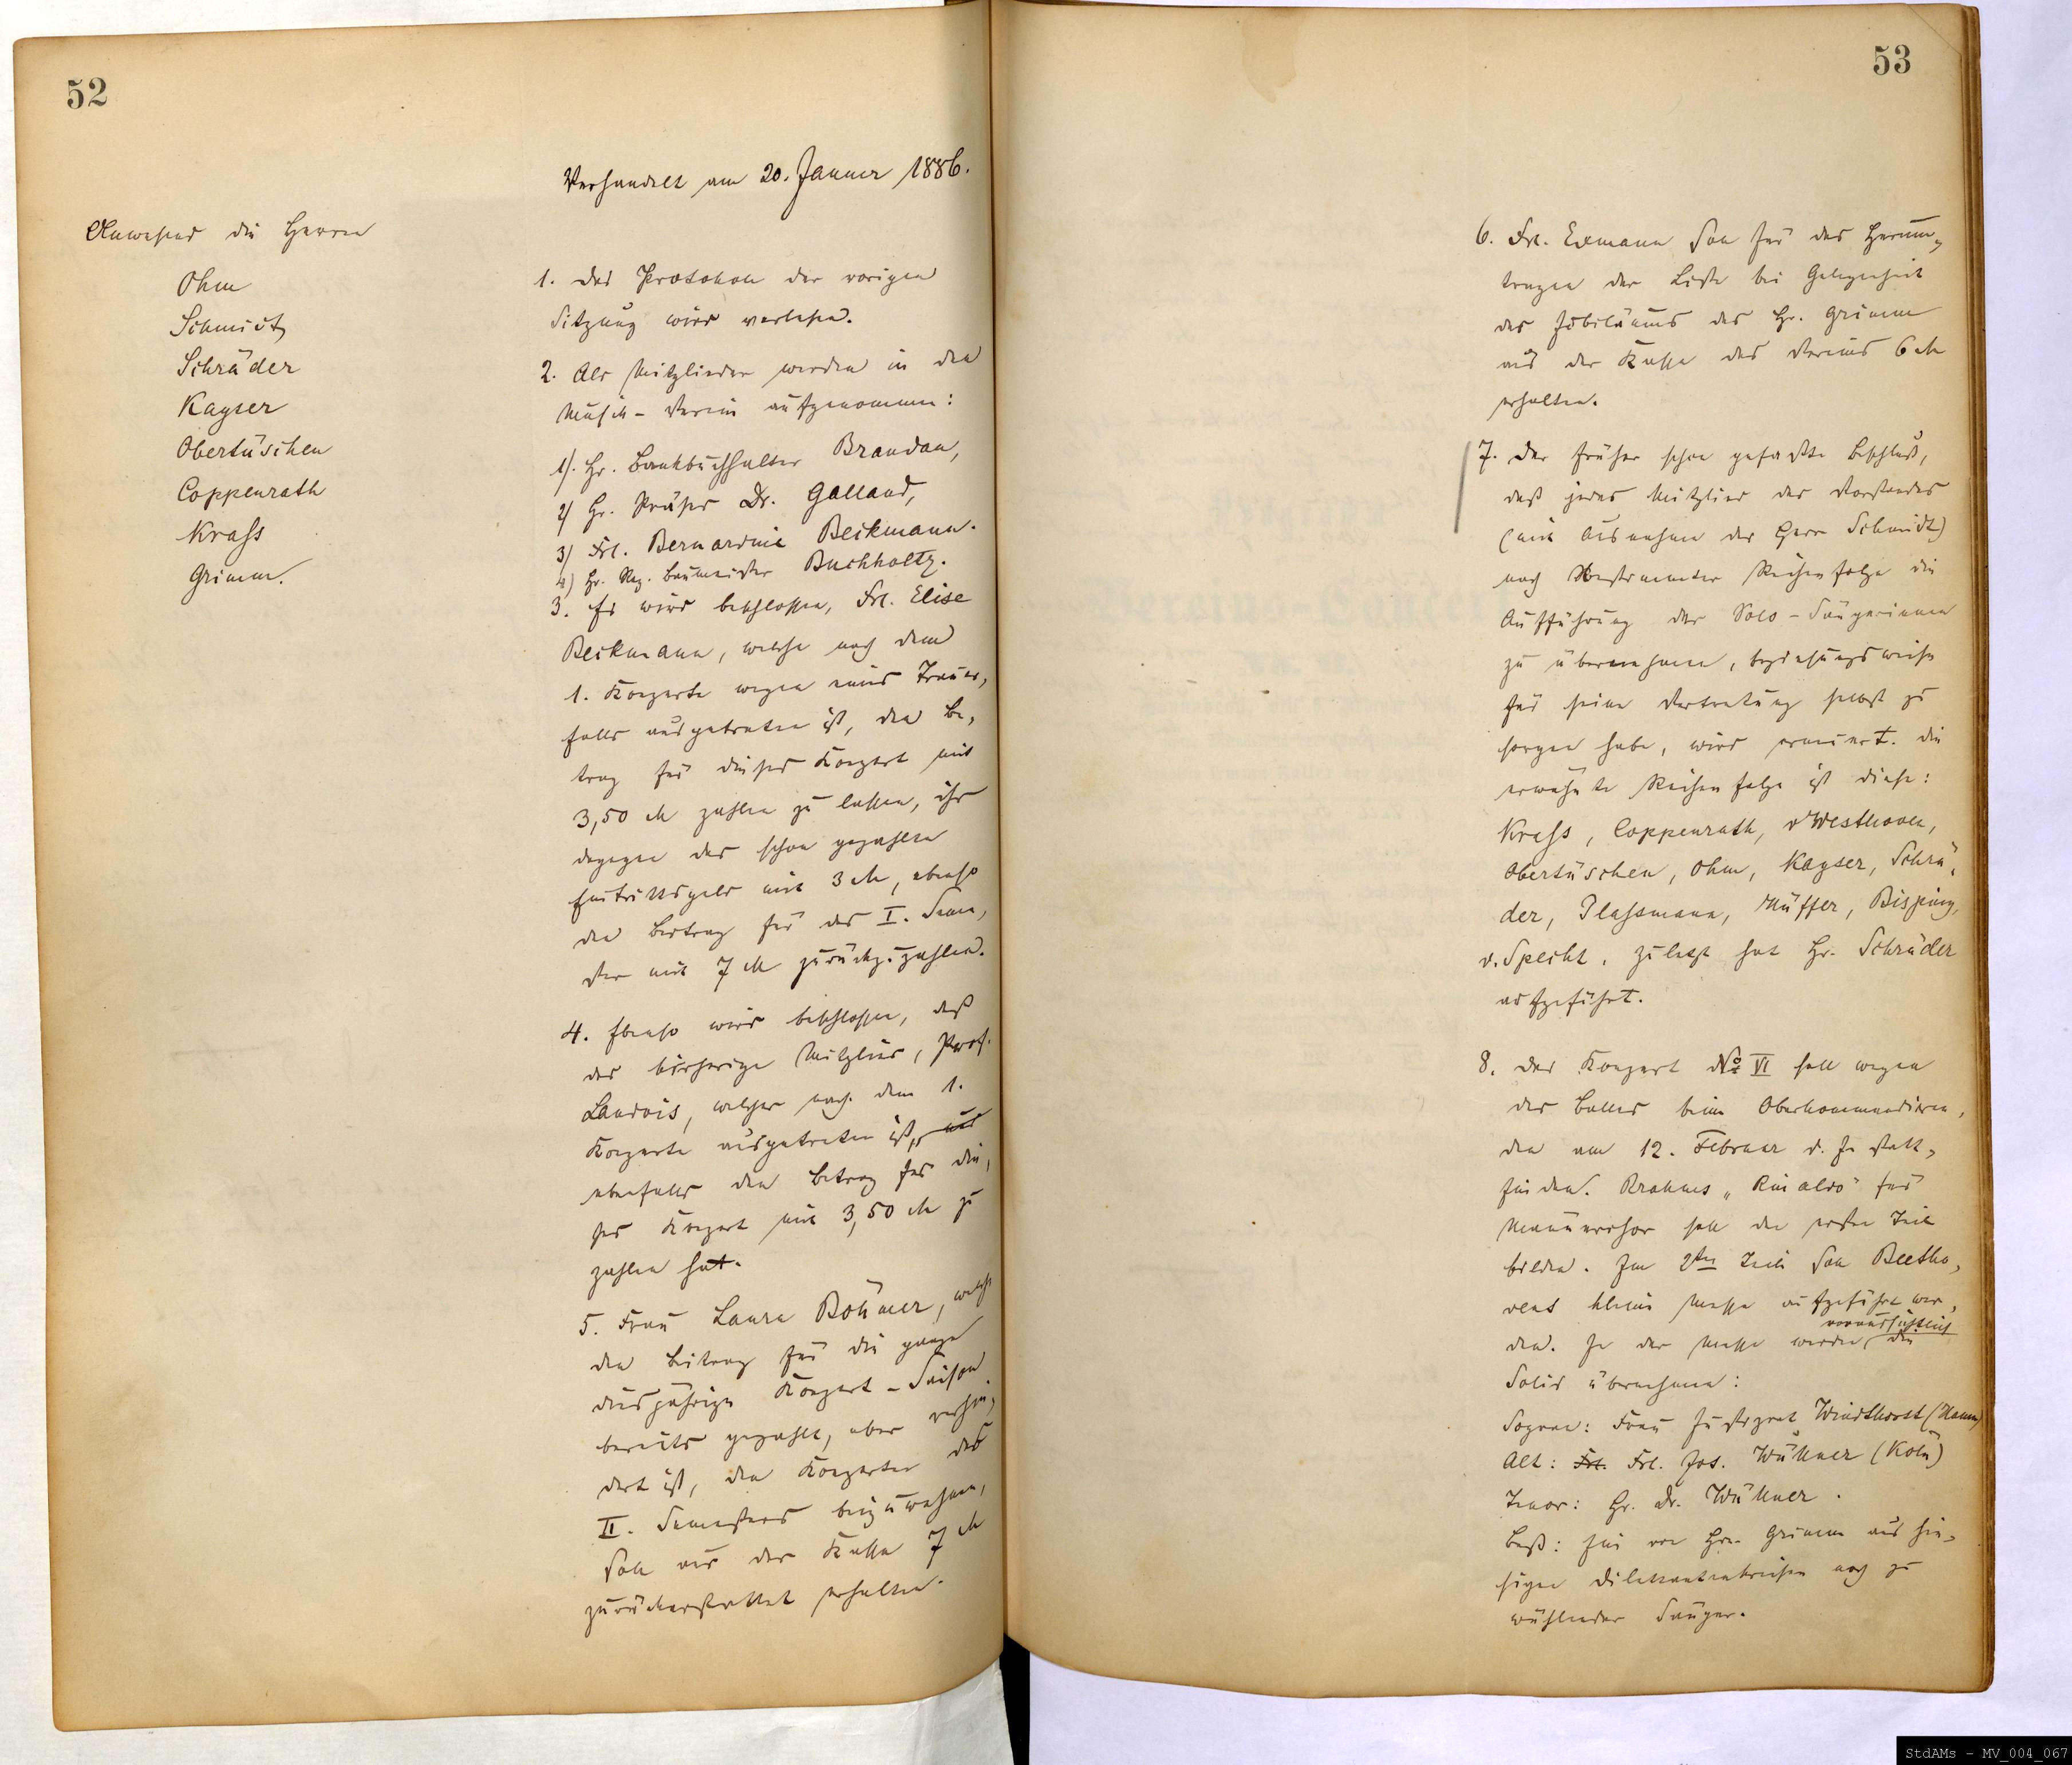 52
Verhandelt am 20. Januar 1886.
Anwesend die Herren
Ohm
Schmidt
Schräder
Kayser
Obertüschen
Coppenrath
Krass
Grimm.
1. Das Protokoll der vorigen
Sitzung wird verlesen.
2. Als Mitglieder werden in den
Musik-Verein aufgenommen:
1). Hr. Bankbuchhalter Brandan,
2) Hr. Präses Dr. Galland,
3) Frl. Bernardine Beckmann.
4) Hr. Reg. Baumeister Buchholtz.
3. Es wird beschlossen, Frl. Elise
Beckmann, welche nach dem
1. Konzerte wegen eines Trauer,
falls ausgetreten ist, den Be,
trag für dieses Konzert mit
3,50 M zahlen zu lassen, ihr
dagegen das schon gezahlte
Eintrittsgeld mit 3 M, ebenso
den Beitrag für das I. Seme,
ster mit 7 M zurückzuzahlen.
4. Ebenso wird beschlossen, daß
das bisherige Mitglied, Prof.
Landois, welcher nach dem 1.
Konzerte ausgetreten ist,
ebenfalls den Betrag für die,
ses Konzert mit 3,50 M zu
zahlen hat.
5. Frau Laura Böhmer, welche
den Beitrag für die ganze
diesjährige Konzert-Saison
bereits gezahlt, aber verhin,
dert ist, den Konzerten des
II. Semesters beizuwohnen,
soll aus der Kasse 7 M
zurückerstattet erhalten.
53
6. Frl. Exmann soll für das Herum,
tragen der Liste bei Gelegenheit
des Jubiläums des Hr. Grimm
aus der Kasse des Vereins 6 M
erhalten.
7. Der früher schon gefaßte Beschluß,
daß jedes Mitglied des Vorstandes
(mit Ausnahme der Herr Schmidt)
nach bestimmter Reihenfolge die
Aufführung der Solo-Sängerinnen
zu übernehmen, beziehungsweise
für seine Vertretung selbst zu
sorgen habe, wird erneuert. Die
erwähnte Reihenfolge ist diese:
Krass, Coppenrath, v Westhoven,
Obertüschen, Ohm, Kayser, Schrä,
der, Plassmann, Hüffer, Bisping,
v. Specht. Zuletzt hat Hr. Schräder
aufgeführt.
8. Das Konzert No VI soll wegen
des Balles beim Oberkommandiren,
den am 12. Februar d. J. statt,
finden. Brahms „Rinaldo" für
Männerchor soll den ersten Teil
bilden. Im 2ten Teile soll Beetho,
vens kleine Messe aufgeführt wer,
den. In der Messe werden voraussichtlich die
Solis übernehmen:
Sopran: Frau Justizrat Windthorst (Hamm)
Alt: Frl. Frl. Jos. Wüllner (Köln)
Tenor: Hr. Dr. Wüllner.
Baß: Ein von Hrn. Grimm aus hie,
sigen Dilettantenkreisen noch zu
wählender Sänger.
StdAMs - MV_004_067